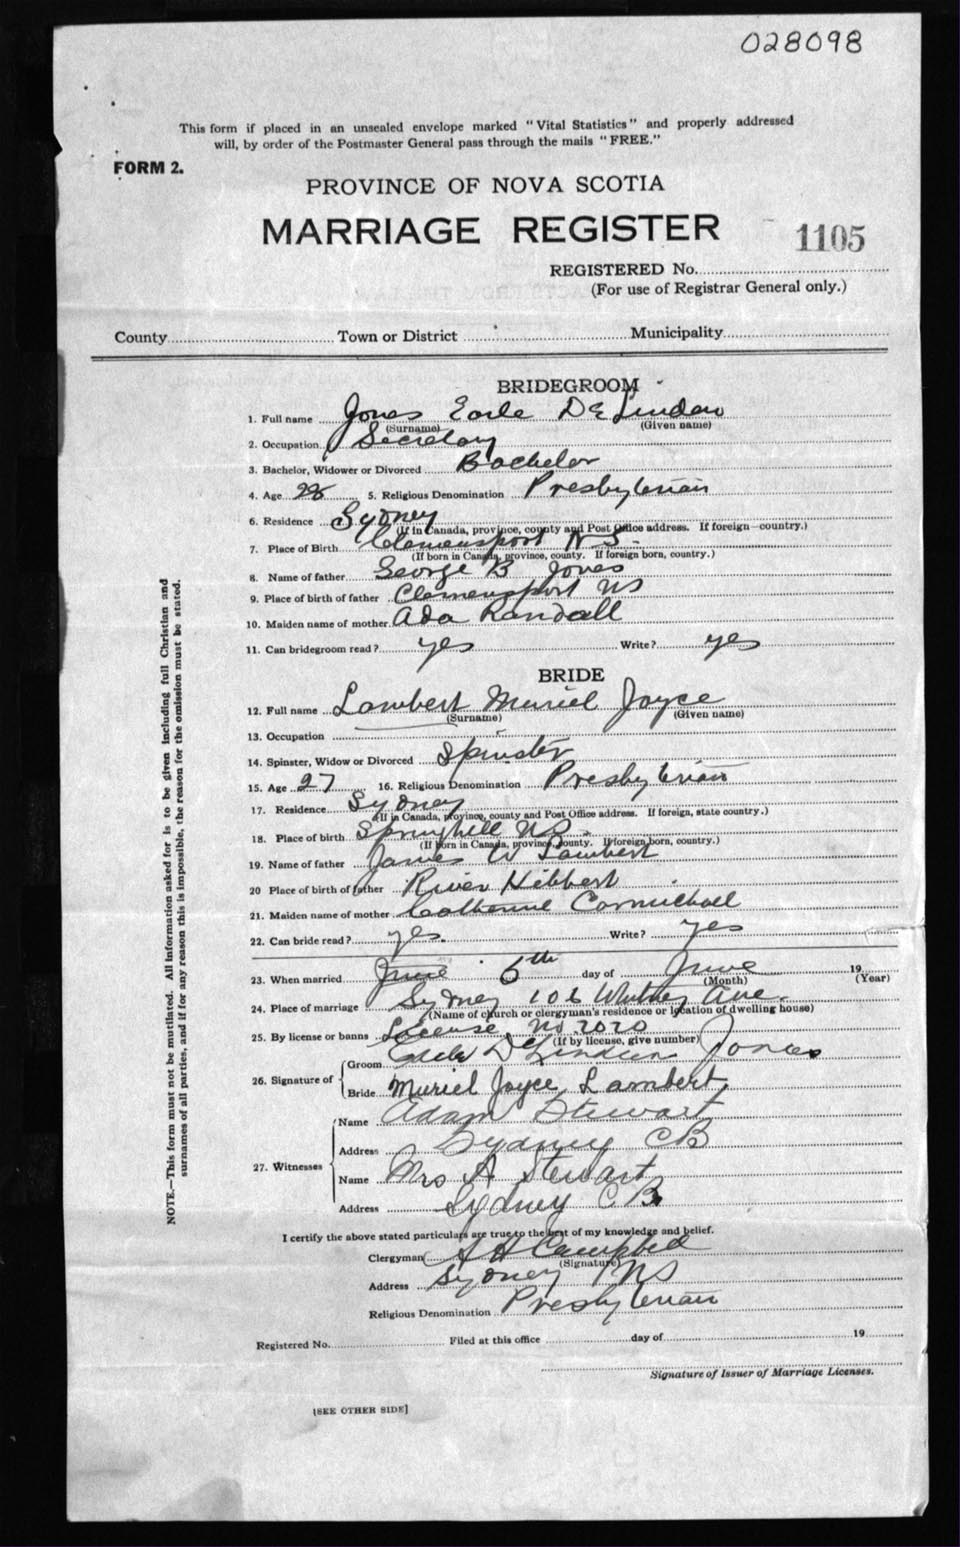 028098
This form if placed in an unsealed envelope marked "Vital Statistics" and properly addressed
will, by order of the Postmaster General pass through the mails "FREE."
FORM 2.
PROVINCE OF NOVA SCOTIA
MARRIAGE REGISTER
1105
REGISTERED No.
(For use of Registrar General only.)
County Town or District Municipality
BRIDEGROOM
1. Full name Jones Earle De Linden
(Surname) (Given name)
2. Occupation Secretary
3. Bachelor, Widower or Divorced Bachelor
4. Age 28 5. Religious Denomination Presbyterian
6. Residence Sydney
(If in Canada, province, county and Post Office address. If foreign—country.)
7. Place of Birth Clemensport N.S.
(If born in Canada, province, county. If foreign born, country.)
8. Name of father George B Jones
9. Place of birth of father Clemensport NS
10. Maiden name of mother Ada Randall
11. Can bridegroom read? yes Write? yes
BRIDE
12. Full name Lambert Muriel Joyce
(Surname) (Given name)
13. Occupation
14. Spinster, Widow or Divorced Spinster
15. Age 27 16. Religious Denomination Presbyterian
17. Residence Sydney
(If in Canada, province, county and Post Office address. If foreign, state country.)
18. Place of birth Springhill NS.
(If born in Canada, province, county. If foreign born, country.)
19. Name of father James W Lambert
20 Place of birth of father River Hibbert
21. Maiden name of mother Catherine Carmichael
22. Can bride read? yes. Write? yes
23. When married June 6th day of June 19
(Month) (Year)
24. Place of marriage Sydney 106 Whitney Ave.
(Name of church or clergyman's residence or location of dwelling house)
25. By license or banns License No 2020
(If by license, give number)
26. Signature of Groom Earle De Linden Jones
Bride Muriel Joyce Lambert
27. Witnesses Name Adam Stewart
Address Sydney CB
Name Mrs A Stewart
Address Sydney C B.
I certify the above stated particulars are true to the best of my knowledge and belief.
Clergyman A H Campbell
(Signature)
Address Sydney NS
Religious Denomination Presbyterian
Registered No. Filed at this office day of 19
Signature of Issuer of Marriage Licenses.
[SEE OTHER SIDE]
NOTE.—This form must not be mutilated. All information asked for is to be given including full Christian and
surnames of all parties, and if for any reason this is impossible, the reason for the omission must be stated.